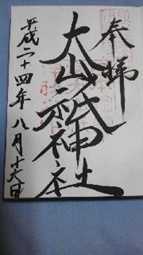 奉拝
大山祇神社
平成二十四年八月十六日